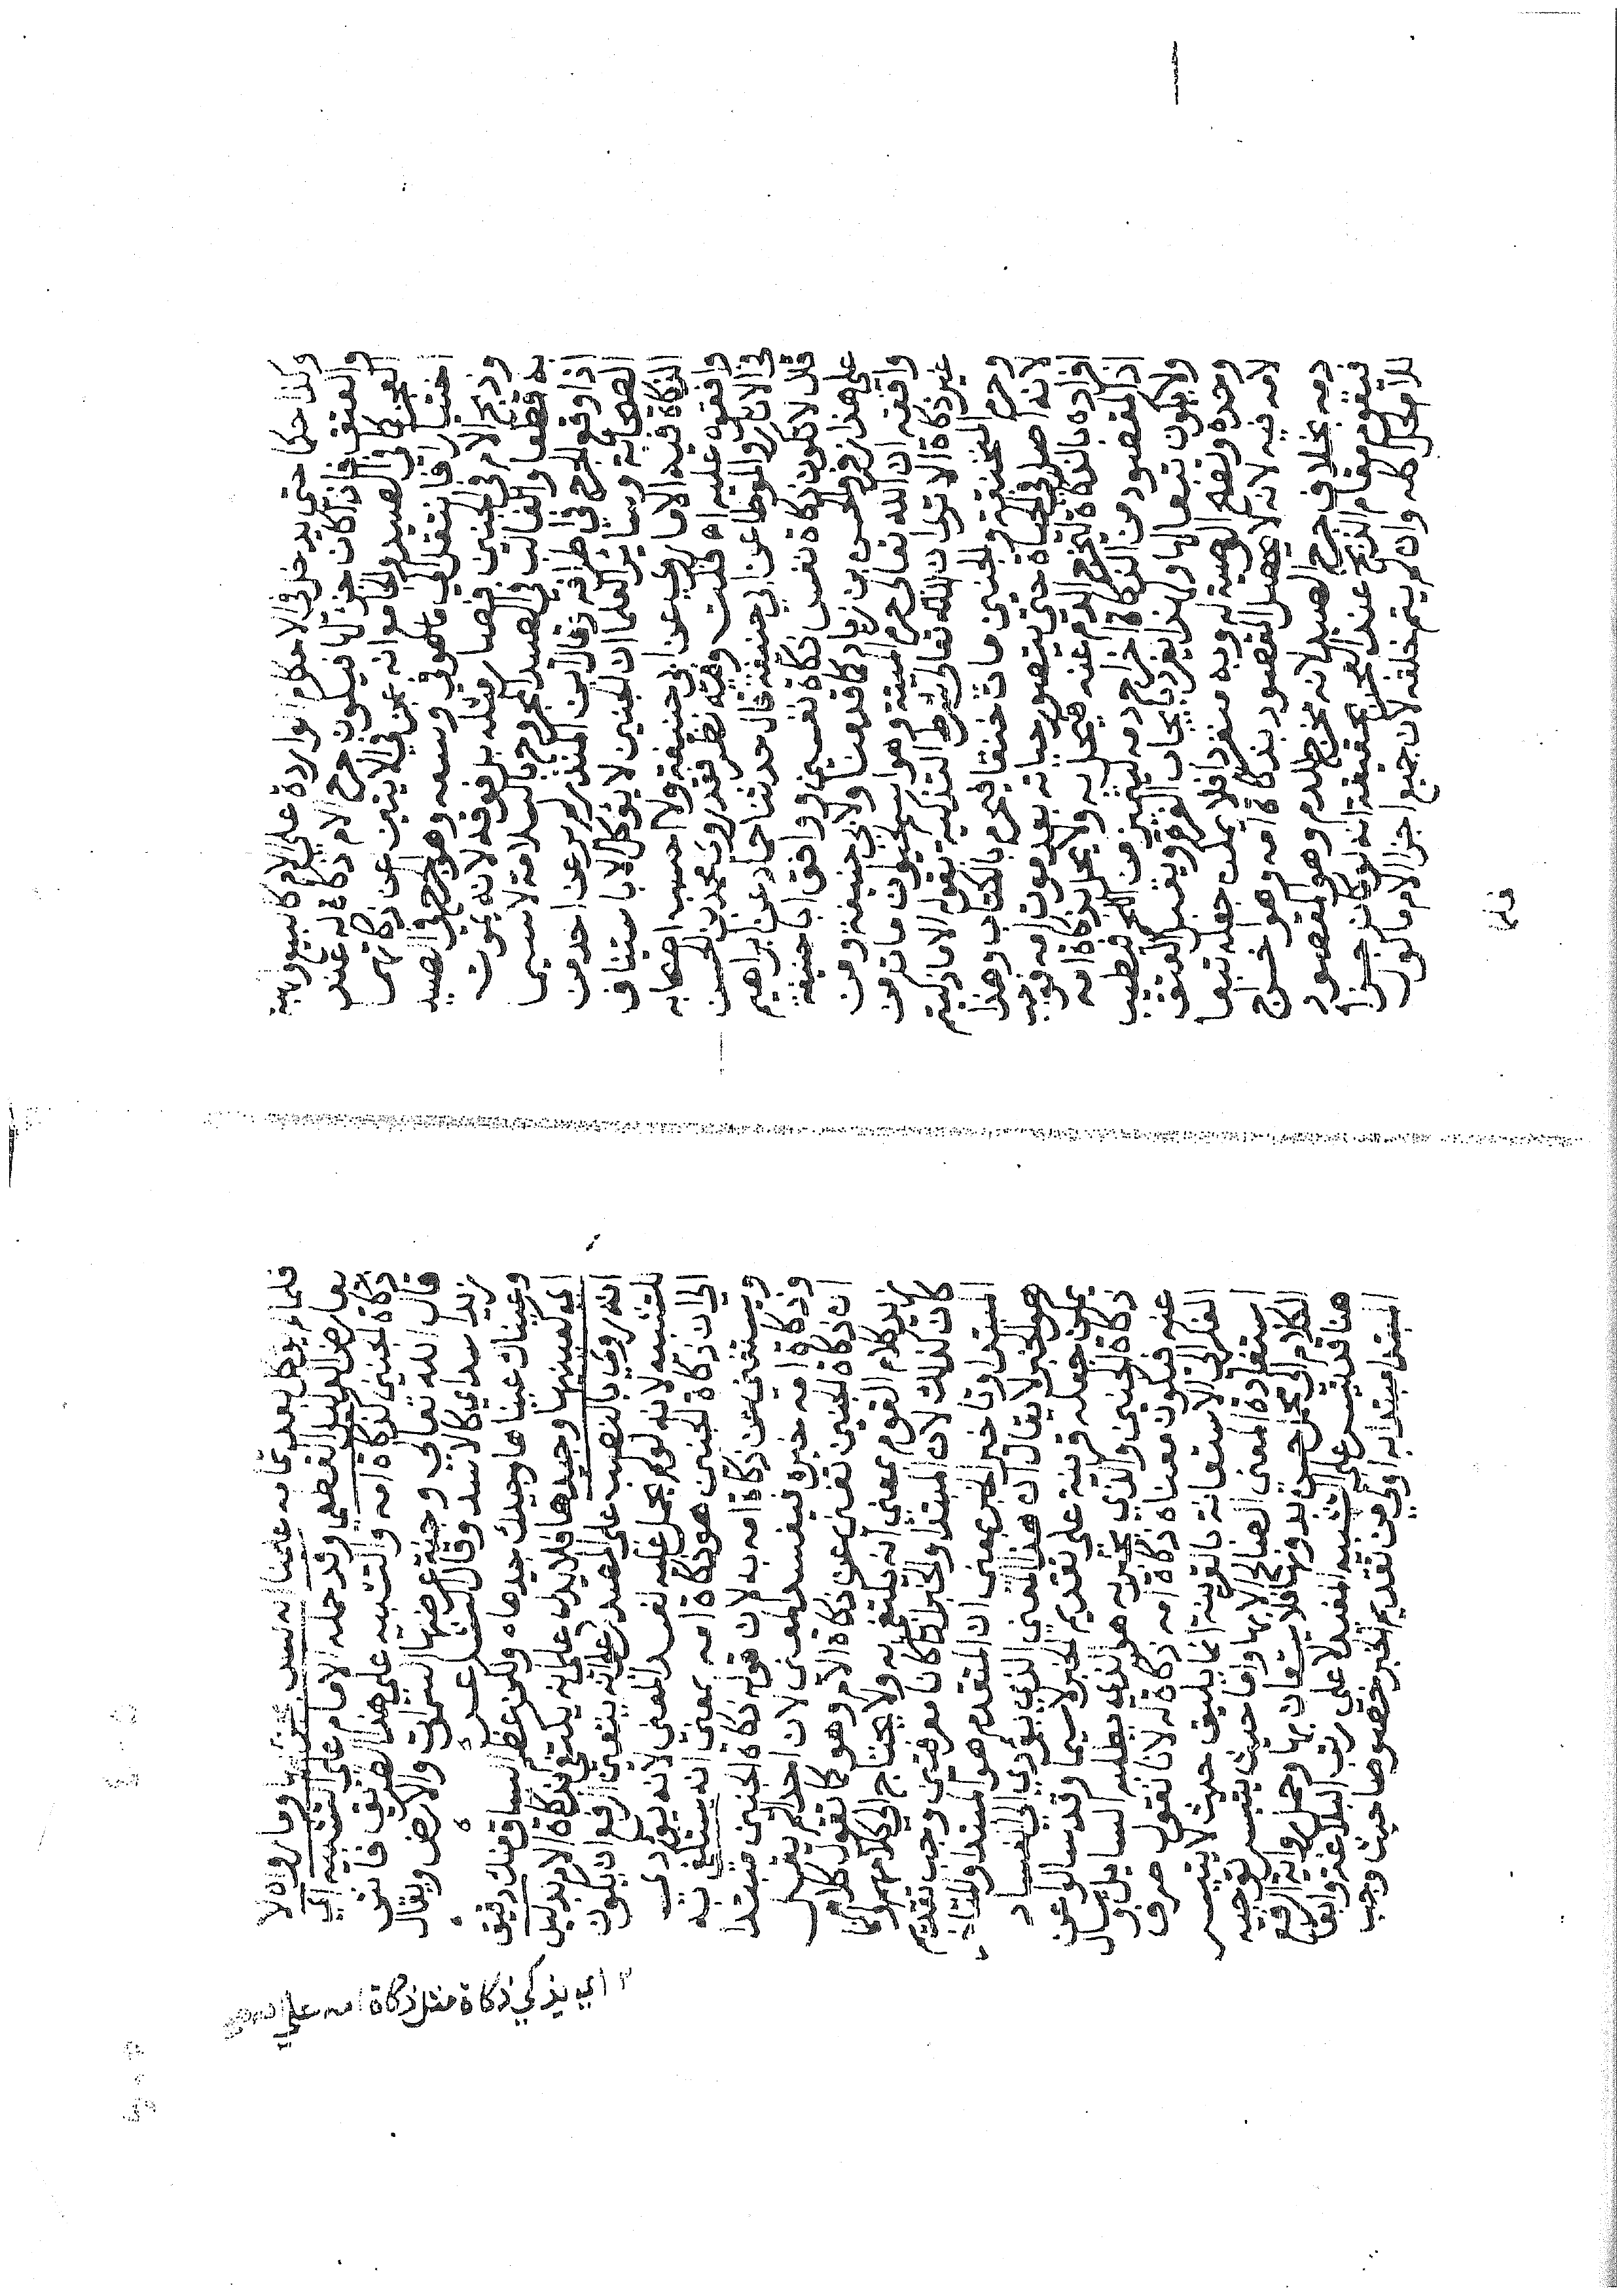 وكذا حكما حتى يدخل في الاحكام الواردة على الام كالبيع والهبة
والعتق فاذا كان جزأ لها فيكون جرح الام ذكاة له عند
العجز كما في الصيد انه عجز في الا يتين عن ذكاتهما
اختيارا فانتقل الى ما هو في وسعه وهو الجرح في الصيد
وذبح الام في الجنين فصار مثله بل فوقه لانه يموت
به قطعا والغالب في الصيد المجروح بالسلامة لا سيما
اذا وقع الجرح في اطرافه وقال ابن المنذر لم يرو عن احد من
الصحابة وسائر العلما ان الجنين لا يؤكل الا باستيناف
الذكاة فيه الا ما روي عن ابي حنيفة ولا احسب اصحابه
وافقوه عليه اه قلت وفيه نظر فقد روى محمد بن الحسن
في الاثار والموطا عن ابي حنيفة قال حدثنا حماد عن ابراهيم
قال لا تكون ذكاة نفس ذكاة نفسين ووافق ابا حنيفة
على هذا زفر والحسن بن زياد كما قدمنا ولابي حنيفة ومن
وافقه ان الله تعالى حرم الميتة وهو اسم لحيوان مات من
غير ذكاة الا ترى ان الله تعالى شرط التذكية بقوله الا ما ذكيتم
وحرم المنخنقة والجنين مات خنقا فيحرم بالكتاب وهذا
لانه اصل في الحياة حتى يتصور حياته بعد موت امه فوجب
افراده بالذكاة ليخرج الدم عنه فيحل به ولا يحل بذكاة امه
اذ المقصود من الذكاة اخراج دمه ليتميز من اللحم فيطيب
ولا يكون تبعا لها ولهذا يفرد بايجاب الغرة ويقبل العتق
وحده وتصح الوصية له وبه منفردا فلا يمكن جعله تبعا
لامه فيه لانه لا يحصل المقصود بذكاة امه وهو اخراج
دمه بخلاف جرح الصيد لانه مخرج للدم وهو المقصود
فيقوم مقام الذبح عند العجز تحقيقه انه لو كان جزأ
للام لحل اكله وان لم يتم خلقه لان جميع اجزا الام ماكول
فلما
فلما لم يؤكل بعد تمامه علمنا انه ليس وما رواه لا
يعارض الدليل القطعي وقد حمله الامام على التشبيه اي
ذكاة الجنين كذكاة امه والتشبيه على هذا الطريق فاش
قال الله تعالى وجنة عرضها السموات والارض ويقال
زيد اسد اي كالاسد وقال الشاعر
وعيناك عيناها وجيدك جيدها ولكن عظم الساق منك دقيق
اي كعينيها وجيدها فلا يدل على انه يكتفي بذكاة الام بدليل
انه روي بالنصب على المصدر على انه يتعين الرفع ان يكون
للتشبيه لانه لو لم يحمل عليه لفسد المعنى لانه يؤدي
الى ان ذكاة الجنين هو ذكاة امه بمعنى انه يستغنى به
ويستغنى عن ذكاة امه به لان قوله ذكاة الجنين مبتدا
وذكاة امه خبره فيفسد المعنى لان احدا لم يقل
ان ذكاة الجنين تغني عن ذكاة الام وهو كما تقول كلام
زيد كلام القوم بمعنى انه يكتفى به ولا يحتاج الى كلامهم وانما
كان كذلك لان المبتدا والخبر اذا كانا معرفتين وجب تقديم
المبتدا وتاخير الخبر بمعنى ان المقدم هو المبتدا والثاني
هو الخبر لا يقال ان هذا المعنى الذي يؤدي الى الفساد
يمكن جعله قرينة على تقديم الخبر لا سيما وقد سالوا عن
ذكاة الجنين والذي يخبر به هو الذي يطلبه السايل ويسال
عنه فيكون معناه ذكاة امه ذكاة له لانا نقول صرف
الفكر الى الاستعانة بالقرينة انما يليق حيث لا يتيسر
استفادة المعنى الصالح الا بها واما حيث يتيسر توجيه
الكلام الى محل حسن بدونها فلا يستعان بها وحمل رواية الرفع
هنا قد تيسر على التشبيه المفيد لاعلى رتب البلاغة وابقا
المبتدا مبتدا به اولى من تقديم الخبر خصوصا حيث وجب
اي يذكي ذكاة مثل ذكاة امه على